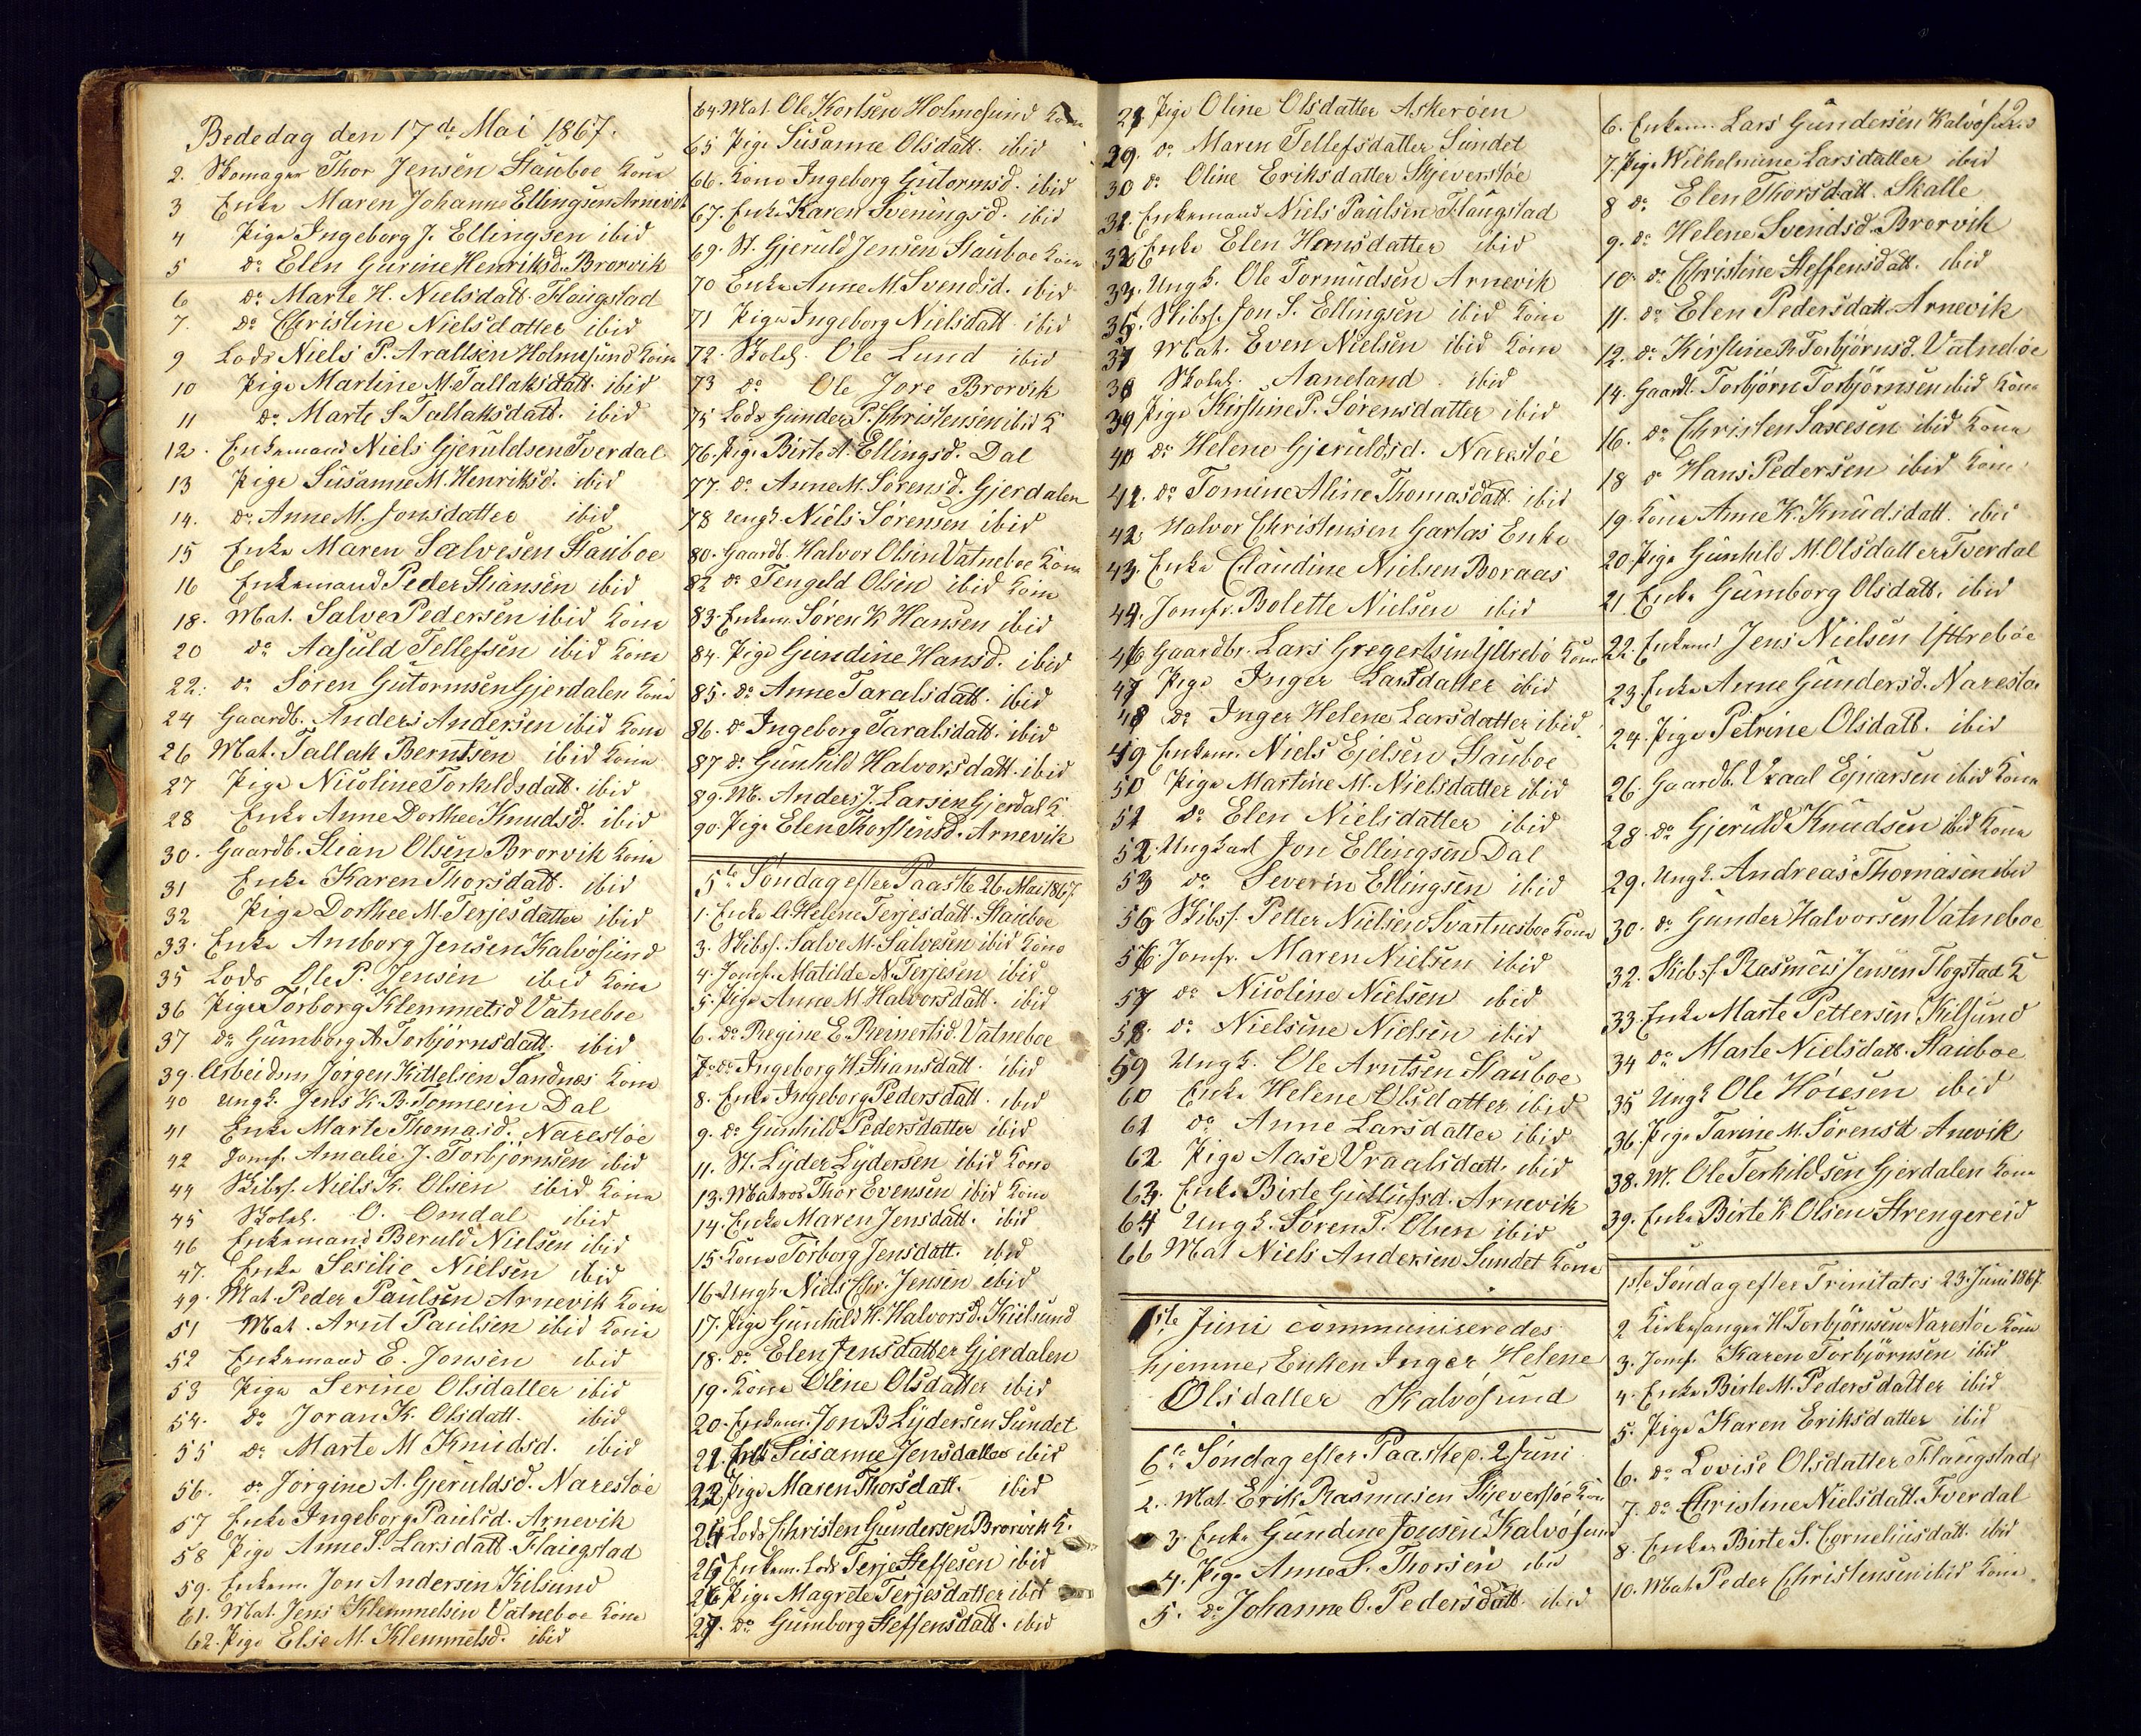 Bededag den 17de Mai 1867.
2. Skomager Thor Jensen Stauboe Kone
3 Enke Maren Johanne Ellingsen Arnevik
4 Pige Ingeborg J. Ellingsen ibid
5 do Elen Gurine Henriksd. Brorvik
6 do Marte H. Nielsdatt. Flougstad
7. do Christine Nielsdatter ibid
9 Lods Niels P. Araltsen Holmesund Kone
10 Pige Martine M. Tallaksdatt. ibid
11 do Marte S. Tallaksdatt. ibid
12. Enkemand Niels Gjeruldsen Tverdal
13 Pige Susanne M. Henriksd. ibid
14. do Anne M. Jonsdatter ibid
15 Enke Maren Salvesen Stauboe
16 Enkemand Peder Stiansen ibid
18. Mat. Salve Pedersen ibid Kone
20 do Aasuld Tellefsen ibid Kone
22. do Soren Gutormsen Gjerdalen Kone
24 Gaardb. Anders Andersen ibid Kone
26 Mat. Tallak Berntsen ibid Kone
27 Pige Nicoline Torkildsdatt. ibid
28 Enke Anne Dorthee Knudsd. ibid
30. Gaardb. Stian Olsen Brorvik Kone
31 Enke Karen Thorsdatt. ibid
32 Pige Dorthee M. Terjesdatter ibid
33. Enke Amborg Jensen Kalvøsund
35 Lods Ole P. Jensen ibid Kone
36 Pige Torborg Klemmetsd Vatneboe
37 do Gumborg A Torbjørnsdatt. ibid
39. Arbeidsm Jørgen Kittelsen Sandnæs Kone
40 Ungk. Jens K. B. Tonnesen Dal
41 Enke Marte Thomasd. Narestøe
42 Jomf. Amalie J. Torbjørnsen ibid
44 Skibsf. Niels K. Olsen ibid Kone
45 Skolel. O. Omdal ibid
46 Enkemand Beruld Nielsen ibid
47. Enke Sesilie Nielsen ibid
49. Mat. Peder Paulsen Arnevik Kone
51 Mat. Arnt Paulsen ibid Kone
52 Enkemand E. Jonsen ibid
53 Pige Serine Olsdatter ibid
54. do Joran K. Olsdatt. ibid
55 do Marte M Knudsd. ibid
56. do Jørgine A. Gjeruldsd. Narestøe
57 Enke Ingeborg Paulsd. Arnevik
58 Pige Anne S. Larsdatt Flaugstad
59. Enkem. Jon Andersen Kilsund
61. Mat. Jens Klemmetsen Vatneboe Kone
62. Pige Else M. Klemmetsd. ibid
64. Mat. Ole Kortsen Holmesund Kone
65 Pige Susanne Olsdatt. ibid
66. Kone Ingeborg Gutormsd. ibid
67. Enke Karen Sveningsd. ibid
69. St. Gjeruld Jensen Stauboe Kone
70 Enke Anne M. Svendsd. ibid
71 Pige Ingeborg Nielsdatt ibid
72. Skolel. Ole Lund ibid
73 do Ole Jore Brorvik
75 Lods Gunder P. Christensen ibid K
76. Pige Birte A. Ellingsd. Dal
77. do Anne M. Sørensd. Gjerdalen
78 Ungk. Niels Sørensen ibid
80. Gaardb. Halvor Olsen Vatneboe Kone
82 do Tengeld Olsen ibid Kone
83. Enkem. Søren K Hansen ibid
84. Pige Gundine Hansd. ibid
85. do Anne Taralsdatt. ibid
86. do Ingeborg Taralsdatt. ibid
87 do Gunhild Halvorsdatt. ibid
89. M. Anders J. Larsen Gjerdal K
90. Pige Elen Thorstensd. Arnevik
5te Søndag efter Paaske 26 Mai 1867.
1. Enke A. Helene Terjesdatt. Stauboe
3. Skibsf. Salve M. Salvesen ibid Kone
4. Jomfr. Matilde N. Terjesen ibid
5. Pige Anne M. Halvorsdatt. ibid
6. do Regine E. Reinertsd. Vatneboe
7. do Ingeborg H. Stiansdatt. ibid
8. Enke Ingeborg Pedersdatt. ibid
9. do Gunhild Pedersdatter ibid
11. St. Lyder Lydersen ibid Kone
13. Matros Thor Evensen ibid Kone
14. Enke Maren Jensdatt. ibid
15. Kone Torborg Jensdatt. ibid
16. Ungk. Niels Chr. Jensen ibid
17. Pige Gunhild H. Halvorsd. Kielsund
18. do Elen Jensdatter Gjerdalen
19. Kone Oline Olsdatter ibid
20. Enkem. Jon B Lydersen Sundet
21. Enke Susanne Jensdatter ibid
22 Pige Maren Thorsdatt. ibid
24 Lods Christen Gundersen Brorvik K.
25 Enkem. Lods Terje Steffesen ibid
26 Pige Magrete Terjesdatter ibid
27. do Gumborg Steffensdatt. ibid
28 Pige Oline Olsdatter Askerøen
29. do Maren Tellefsdatter Sundet
30 do Oline Eriksdatter Skjeverstøe
31. Enkemand Niels Paulsen Flaugstad
32 Enke Elen Hansdatter ibid
33. Ungk. Ole Tormudsen Arnevik
35. Skibsf. Jon S. Ellingsen ibid Kone
37 Mat. Even Nielsen ibid Kone
38 Skolel. Aaneland ibid
39 Pige Kirstine P. Sørensdatter ibid
40 do Helene Gjeruldsd. Narestøe
41. do Tomine Aline Thomasdatt. ibid
42 Halvor Christensen Gartas Enke
43. Enke Claudine Nielsen Boraas
44. Jomfr. Bolette Nielsen ibid
46 Gaardbr. Lars Gregertsen Yttrebø Kone
47 Pige Inger Larsdatter ibid
48 do Inger Helene Larsdatter ibid
49 Enkem. Niels Ejelsen Stauboe
50 Pige Martine M. Nielsdatter ibid
51 do Elen Nielsdatter ibid
52. Ungkarl Jon Ellingsen Dal
53 do Severin Ellingsen ibid
55 Skibsf. Petter Nielsen Svartnesboe Kone
56. Jomfr. Maren Nielsen ibid
57 do Nicoline Nielsen ibid
58. do Nielsine Nielsen ibid
59 Ungk. Ole Arntsen Stauboe
60 Enke Helene Olsdatter ibid
61 do Anne Larsdatter ibid
62 Pige Aase Vraalsdatt. ibid
63. Enke Birte Gullufsd. Arnevik
64 Ungk. Søren T. Olsen ibid
66 Mat Niels Andersen Sundet Kone
1ste Juni communiseredes
hjemme, Enken Inger Helene
Olsdatter Kalvøsund
6te Søndag efter Paaske d. 2 Juni
2. Mat. Erik Rasmusen Skjeverstøe Kone
3. Enke Gundine Jonsen Kalvøsund
4. Pige Anne S. Thorsen ibid
5. do Johanne O. Pedersdatt. ibid
2
6. Enkem. Lars Gundersen Kalvøsund
7. Pige Wilhelmine Larsdatter ibid
8 do Elen Thorsdatt. Skalle
9. do Helene Svendsd. Brorvik
10. do Christine Steffensdatt. ibid
11. do Elen Pedersdatt. Arnevik
12. do Kirstine R. Torbjørnsd. Vatneboe
14. Gaardb. Torbjørn Torbjørnsen ibid Kone
16. do Christen Saxesen ibid Kone
18 do Hans Pedersen ibid Kone
19. Kone Anne K. Knudsdatt. ibid
20. Pige Gunhild M. Olsdatter Tverdal
21 Enke Gumborg Olsdatt. ibid
22. Enkemd Jens Nielsen Yttreboe
23. Enke Anne Gundersd. Narestø
24. Pige Petrine Olsdatt. ibid
26. Gaardb. Vraal Ejnarsen ibid Kone
28. do Gjeruld Knudsen ibid Kone
29. Ungk. Andreas Thomasen ibid
30. do Gunder Halvorsen Vatneboe
32. Skibsf. Rasmus Jensen Flogstad K
33. Enke Marte Pettersen Kilsund
34 do Marte Nielsdatt. Stauboe
35 Ungk Ole Høiesen ibid
36. Pige Tarine M. Sørensd Anevik
38. M. Ole Terkildsen Gjerdalen Kone
39. Enke Birte K Olsen Strengereid
1ste Søndag efter Trinitatis 23. Juni 1867.
2 Kirkesanger H. Torbjørnsen Narestøe Kone
3. Jomf. Karen Torbjørnsen ibid
4. Enke Birte M. Pedersdatter ibid
5. Pige Karen Eriksdatter ibid
6. do Lovise Olsdatter Flaugstad
7. do Christine Nielsdatt. Tverdal
8. Enke Birte S. Corneliusdatt. ibid
10. Mat Peder Christensen ibid Kone